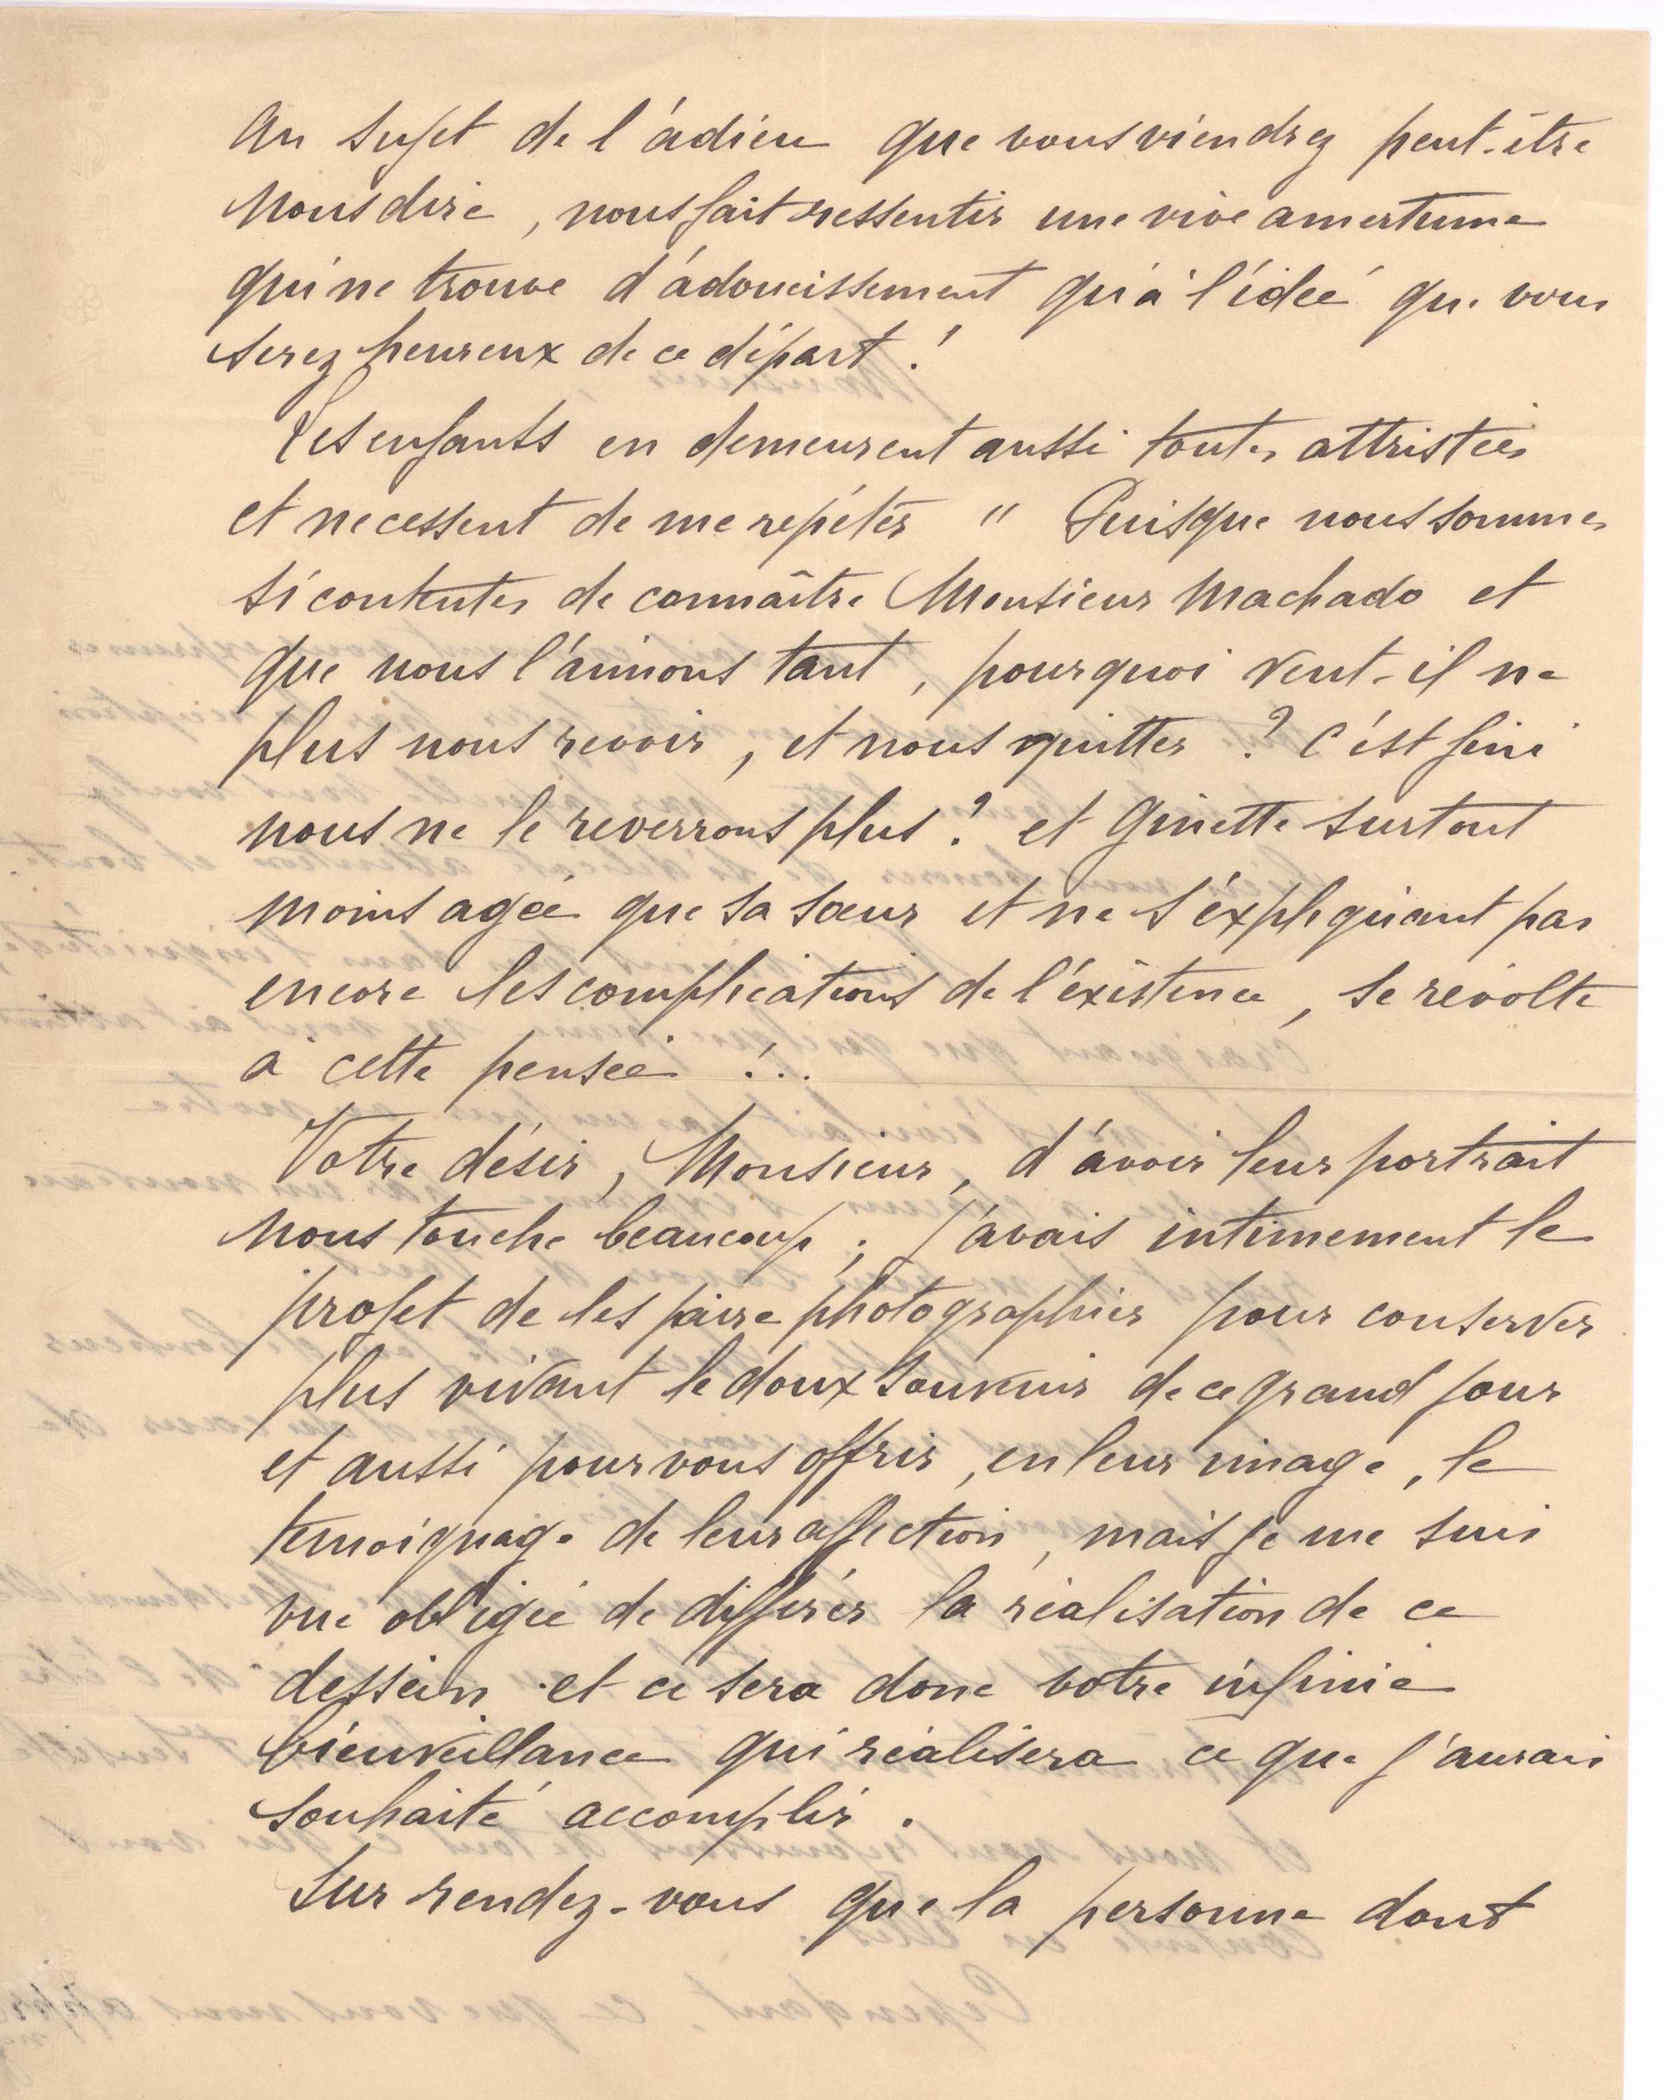 au sujet de l'adieu que vous viendrez peut-être
nous dire, nous fait ressentir une vive amertume
qui ne trouve d'adoucissement qu'à l'idée que vous
serez heureux de ce départ !
Les enfants en demeurent aussi toutes attristées
et ne cessent de me répéter " Puisque nous sommes
si contentes de connaître Monsieur Machado et
que nous l'aimons tant, pourquoi veut-il ne
plus nous revoir, et nous quitter ? C'est fini
nous ne le reverrons plus ? et Ginette surtout
moins agée que sa sœur et ne s'éxpliquant pas
encore les complications de l'éxistence, se révolte
à cette pensée !..
Votre désir, Monsieur, d'avoir leur portrait
nous touche beaucoup ; j'avais intimement le
projet de les faire photographier pour conserver
plus vivant le doux souvenir de ce grand jour
et aussi pour vous offrir, en leur image, le
témoignage de leur affection, mais je me suis
vue obligée de différer la réalisation de ce
dessein et ce sera donc votre infinie
bienveillance qui réalisera ce que j'aurais
souhaité accomplir.
Sur rendez-vous que la personne dont